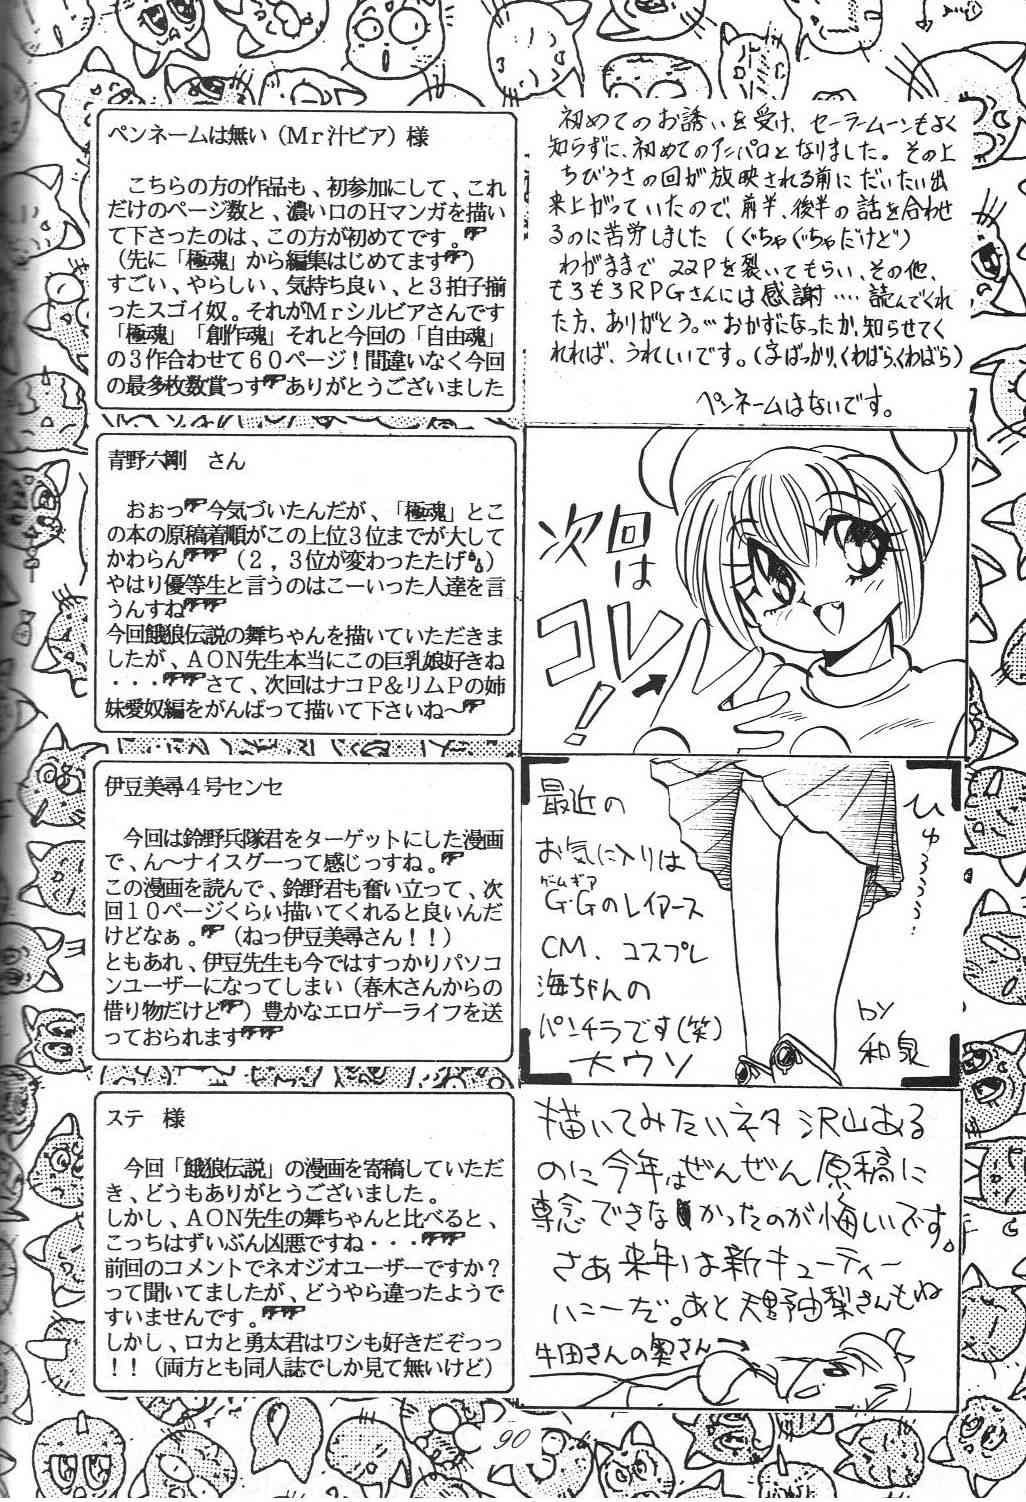 ペンネームは無い(Mr汁ビア)様
こちらの方の作品も、初参加にして、これ
だけのページ数と、濃い口のHマンガを描い
て下さったのは、この方が初めてです。
(先に「極魂」から編集はじめてます)
すごい、やらしい、気持ち良い、と3拍子揃
ったスゴイ奴。それがMrシルビアさんです
「極魂」「創作魂」それと今回の「自由魂」
の3作合わせて60ページ!間違いなく今回
の最多枚数賞っすありがとうございました
初めてのお誘いを受け、セーラームーンもよく
知らずに、初めてのアンパロとなりました。その上
ちびうさの回が放映される前にだいたい出
来上がっていたので、前半、後半の話を合わせ
るのに苦労しました(ぐちゃぐちゃだけど)
わがままで22Pを裂いてもらい、その他、
もろもろRPGさんには感謝‥‥読んでくれ
た方、ありがとう。…おかずになったか、知らせてく
れれば、うれしいです。(字ばっかり、くわばら、くわばら)
ペンネームはないです。
青野六剛 さん
おぉっ今気づいたんだが、「極魂」とこ
の本の原稿着順がこの上位3位までが大して
かわらん(2,3位が変わったたげ)
やはり優等生と言うのはこーいった人達を言
うんすね
今回餓狼伝説の舞ちゃんを描いていただきま
したが、AON先生本当にこの巨乳娘好きね
・・・さて、次回はナコP&リムPの姉
妹愛奴編をがんばって描いて下さいね〜
次回は
コレ!
伊豆美尋4号センセ
今回は鈴野兵隊君をターゲットにした漫画
で、ん〜ナイスグーって感じっすね。
この漫画を読んで、鈴野君も奮い立って、次
回10ページくらい描いてくれると良いんだ
けどなぁ。(ねっ伊豆美尋さん!!)
ともあれ、伊豆先生も今ではすっかりパソコ
ンユーザーになってしまい(春木さんからの
借り物だけど)豊かなエロゲーライフを送
っておられます
最近の
お気に入りは
ゲームギア
G・Gのレイアース
CM、コスプレ
海ちゃんの
パンチラです(笑)
大ウソ
ひゅ
by
和泉
ステ 様
今回「餓狼伝説」の漫画を寄稿していただ
き、どうもありがとうございました。
しかし、AON先生の舞ちゃんと比べると、
こっちはずいぶん凶悪ですね・・・
前回のコメントでネオジオユーザーですか?
って聞いてましたが、どうやら違ったようで
すいませんです。
しかし、ロカと勇太君はワシも好きだぞっっ
!!(両方とも同人誌でしか見て無いけど)
描いてみたいネタ沢山ある
のに今年はぜんぜん原稿に
専念できなかったのが悔しいです。
さあ来年は新キューティー
ハニーだ。あと天野由梨さんもね
牛田さんの奥さん
90